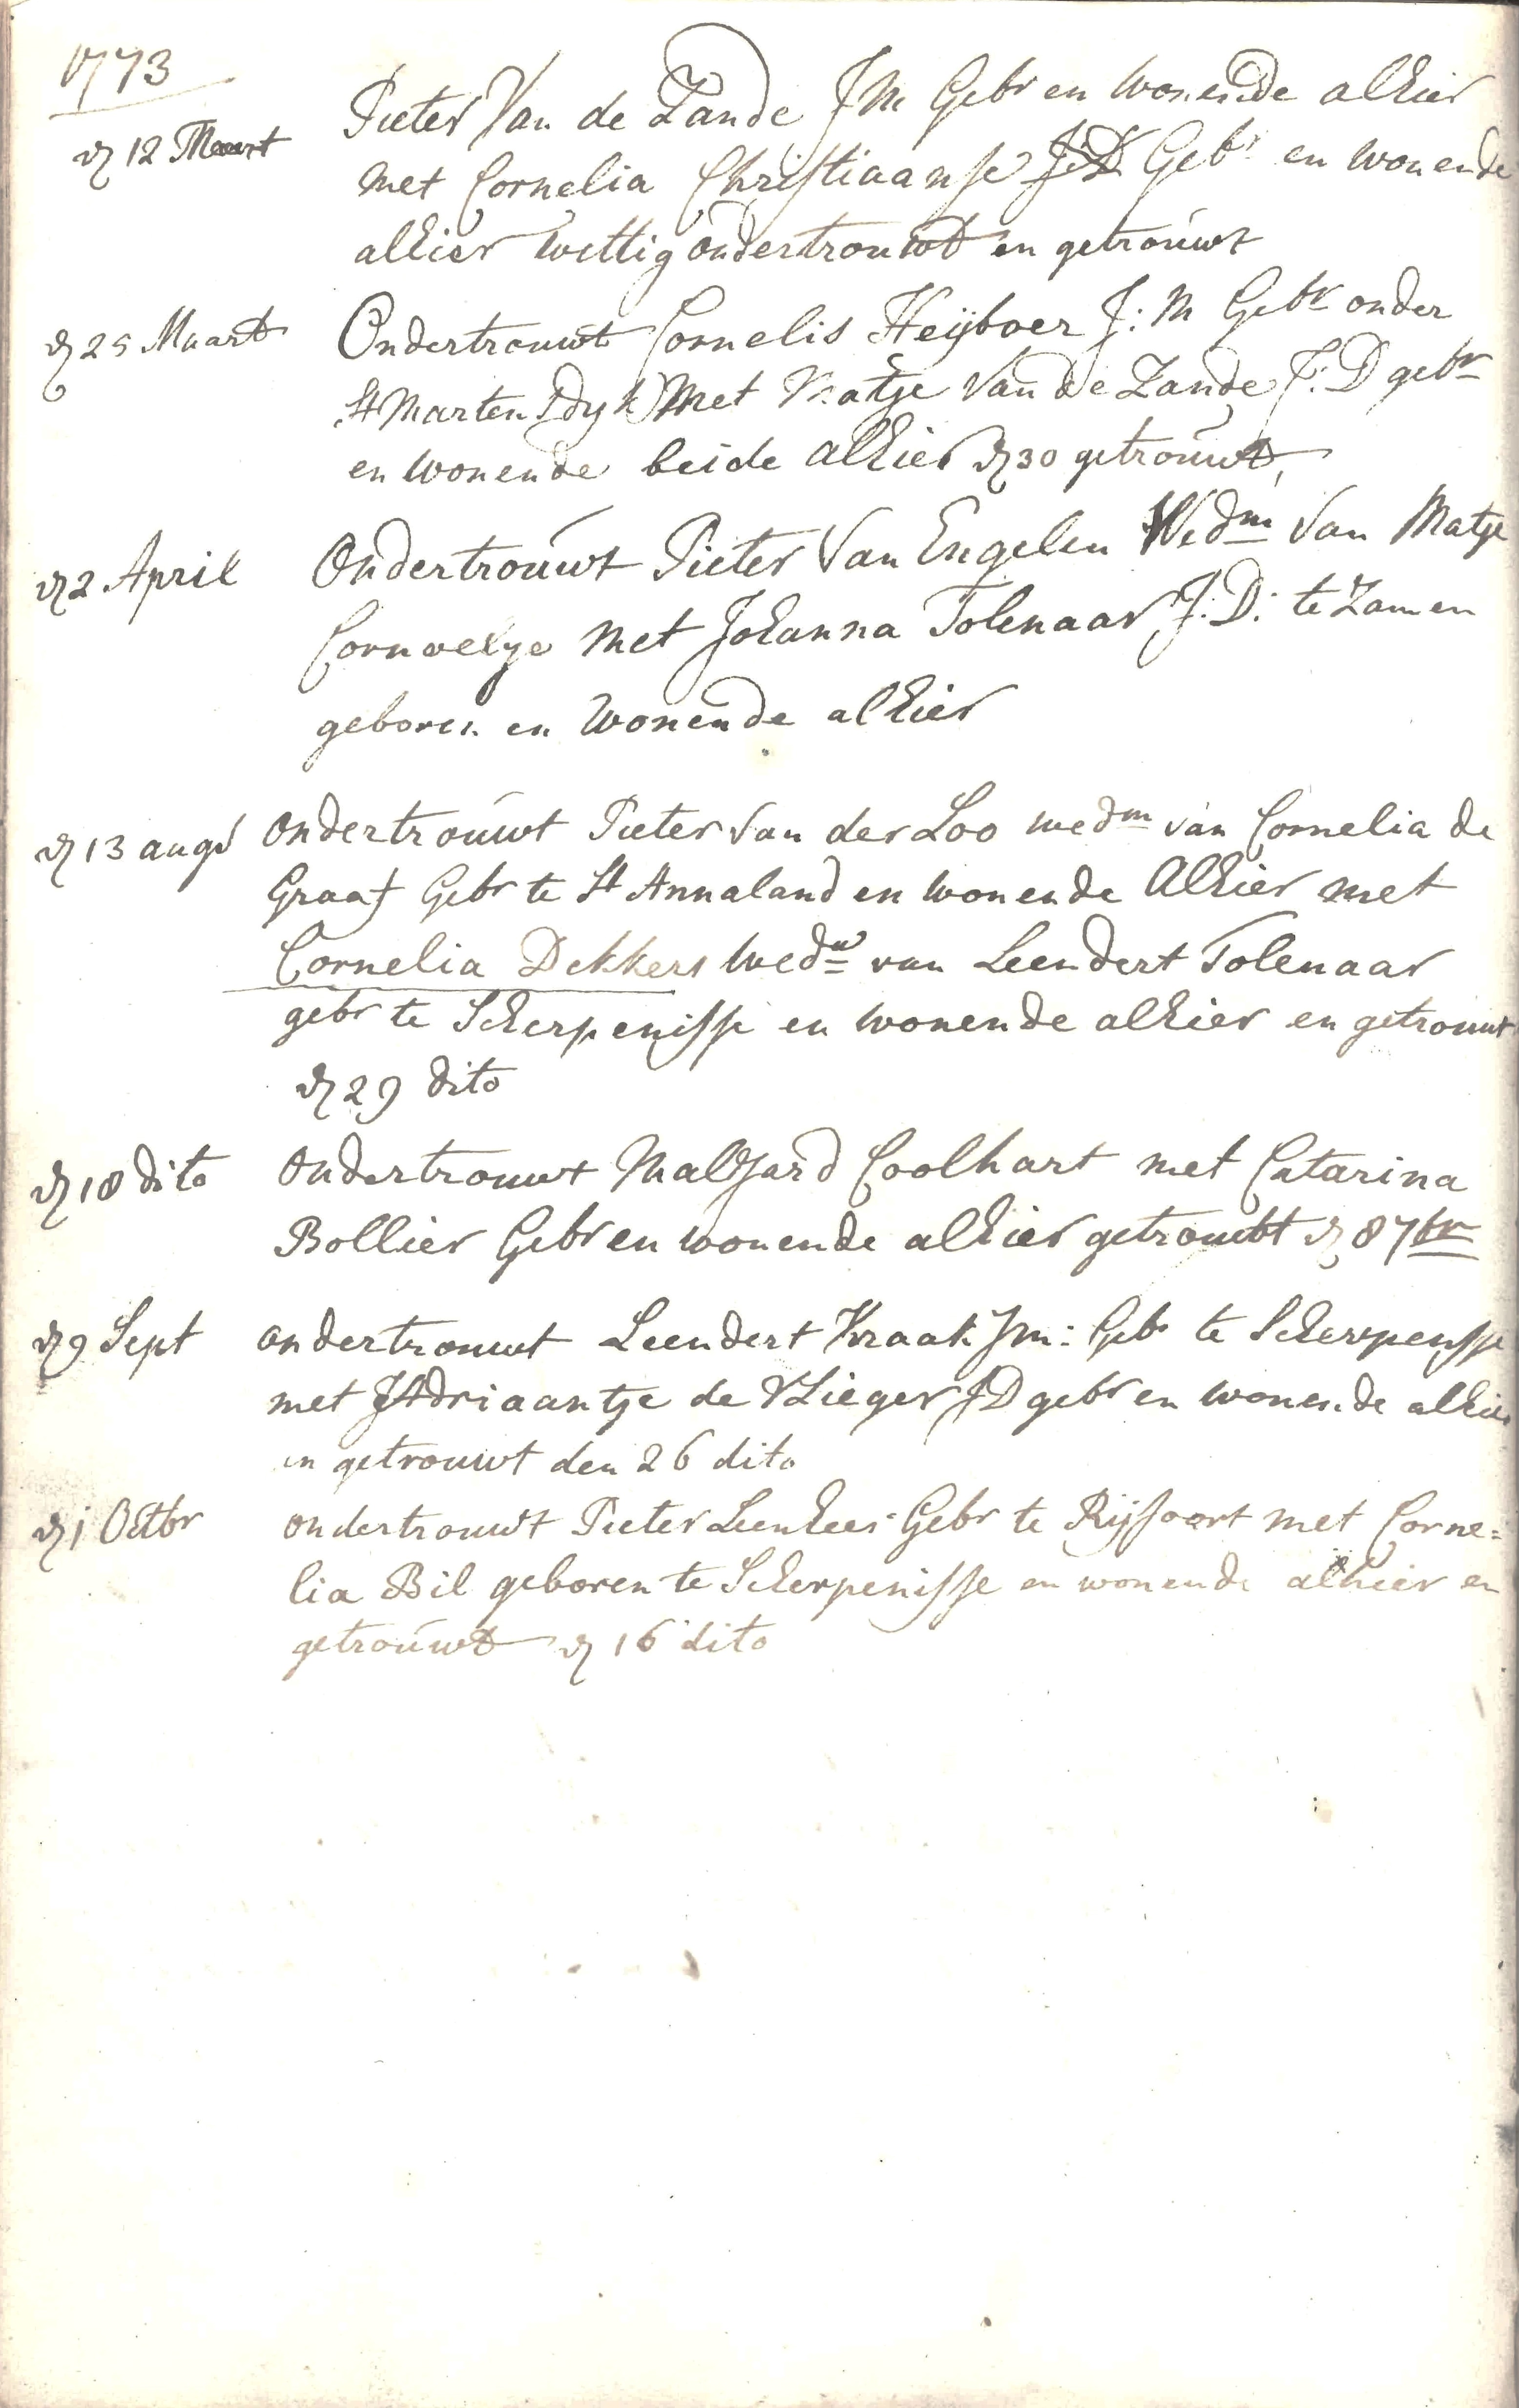 1773
dn 12 Maart Pieter Van de Zande J M Gebr en wonende alhier
met Cornelia Christiaanse J:D Gebr en wonende
alhier wettig ondertrouwt en getrouwt
dn 25 Maart Ondertrouwt Cornelis Heijboer J: M Gebr onder
St Martensdyk Met Matje Van de Zande J: D gebr
en wonende beide alhier dn 30 getrouwt
dn 2 April Ondertrouwt Pieter Van Engelen Wedm Van Matje
Cornelye Met Johanna Tolenaar J: D: te Zamen
geboren en wonende alhier
dn 13 augs ondertrouwt Pieter Van der Loo wedm van Cornelia de
Graaf Gebr te St Annaland en wonende Alhier met
Cornelia Dekkers wedw van Leendert Tolenaar
gebr te Scherpenisse en wonende alhier en getrouwt
dn 29 dito
dn 18 dito ondertrouwt Coolhart met Catarina
Bollier Gebr en wonende alhier getrouwt dn 8 7br
dn 9 Sept ondertrouwt Leendert Kraak Jm: Geb te Scherpensse
met Adriaantje de Vlieger JD gebr en wonende alhier
en getrouwt den 26 dito
dn 1 Octbr ondertrouwt Pieter Leenhees Gebr te Rijsoort met Corne=
lia Bil geboren te Scherpenisse en wonende alhier en
getrouwt dn 16 dito